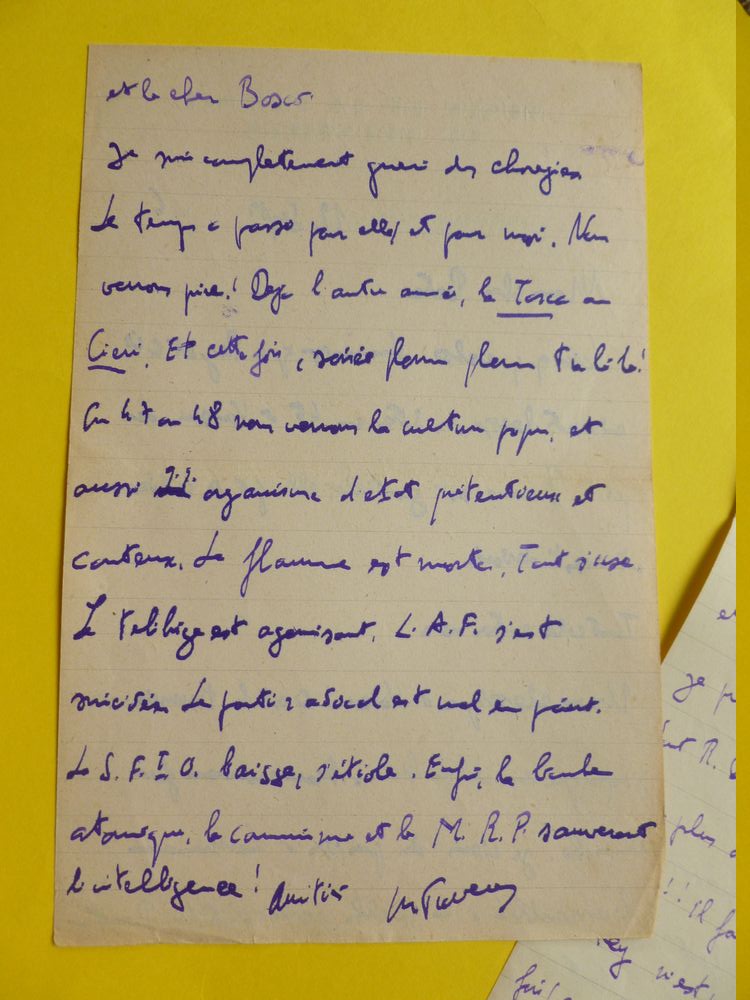 et le cher Bosco
Je suis completement gueri des choregies
Le temps a passé par elles et par moi. Nous
verrons pire! Deja l'autre année, la Tosca au
Cieri. Et cette fois, soirée flamm flamm
En 47 ou 48 nous verrons la culture popu. et
aussi organisme d'etat prétentieux et
couteux. La flamme est morte. Tout s'use.
Le Felibrige est agonisant. L. A. F. s'est
suicidée. Le parti radical est mal en point.
La S. F. I. O. baisse, s'étiole. Enfin, la bombe
atomique, le communisme et le M. R. P. sauveront
l'intelligence! Amitiés
et
Je p
R.
plus
!! Il fa
n'est